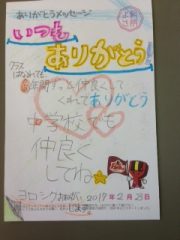 ありがとうメッセージ
いつも
ありがとう
クラス
はなれても
6年間ずっと仲良くして
くれてありがとう
中学校でも
仲良く
してね☆
ヨロシク
2019年2月28日